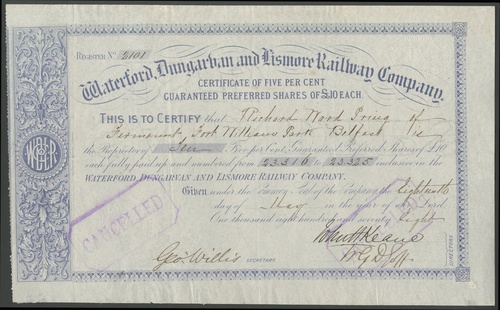 REGISTER No 2101
Waterford, Dungarvan and Lismore Railway Company,
CERTIFICATE OF FIVE PER CENT
GUARANTEED PREFERRED SHARES OF £10 EACH.
THIS IS TO CERTIFY that Richard Wood of
Fort William Park Belfast is
the Proprietor of Ten Five per Cent. Guaranteed Preferred Shares of £10
each fully paid up and numbered from 23316 to 23325 inclusive in the
WATERFORD, DUNGARVAN AND LISMORE RAILWAY COMPANY.
Given under the Common Seal of the Company the Eighteenth
day of May in the year of our Lord
One thousand eight hundred and seventy Eight
CANCELLED
John H Keane
Geo. Willis SECRETARY
DIRECTORS